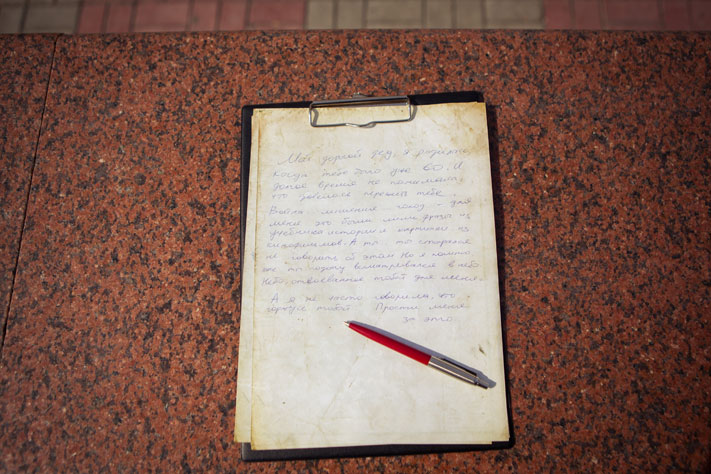 Мой дорогой дед, я родилась,
когда тебе было уже 60. И
долгое время не понимала,
что довелось пережить тебе.
Война, лишения, голод - для
меня это были лишь фразы из
учебника истории и картинки из
кинофильмов. А ты, ты старался
не говорить об этом. Но я помню,
как ты подолгу всматривался в небо.
Небо, отвоёванное тобой для меня.
А я не часто говорила, что
горжусь тобой. Прости меня
за это